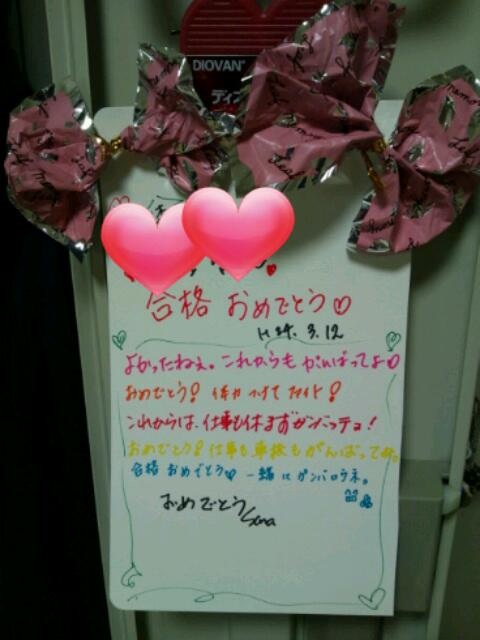 DIOVAN
ディオ
合格 おめでとう♡
H24. 3. 12
よかったねぇ。これからも がんばってよ♡
おめでとう! 体力 つけて ファイト!
これからは、仕事も休まずガンバッテョ!
おめでとう!仕事も 勉強もがんばってね。
合格 おめでとう♡ 一緒にガンバロウネ。
おめでとう